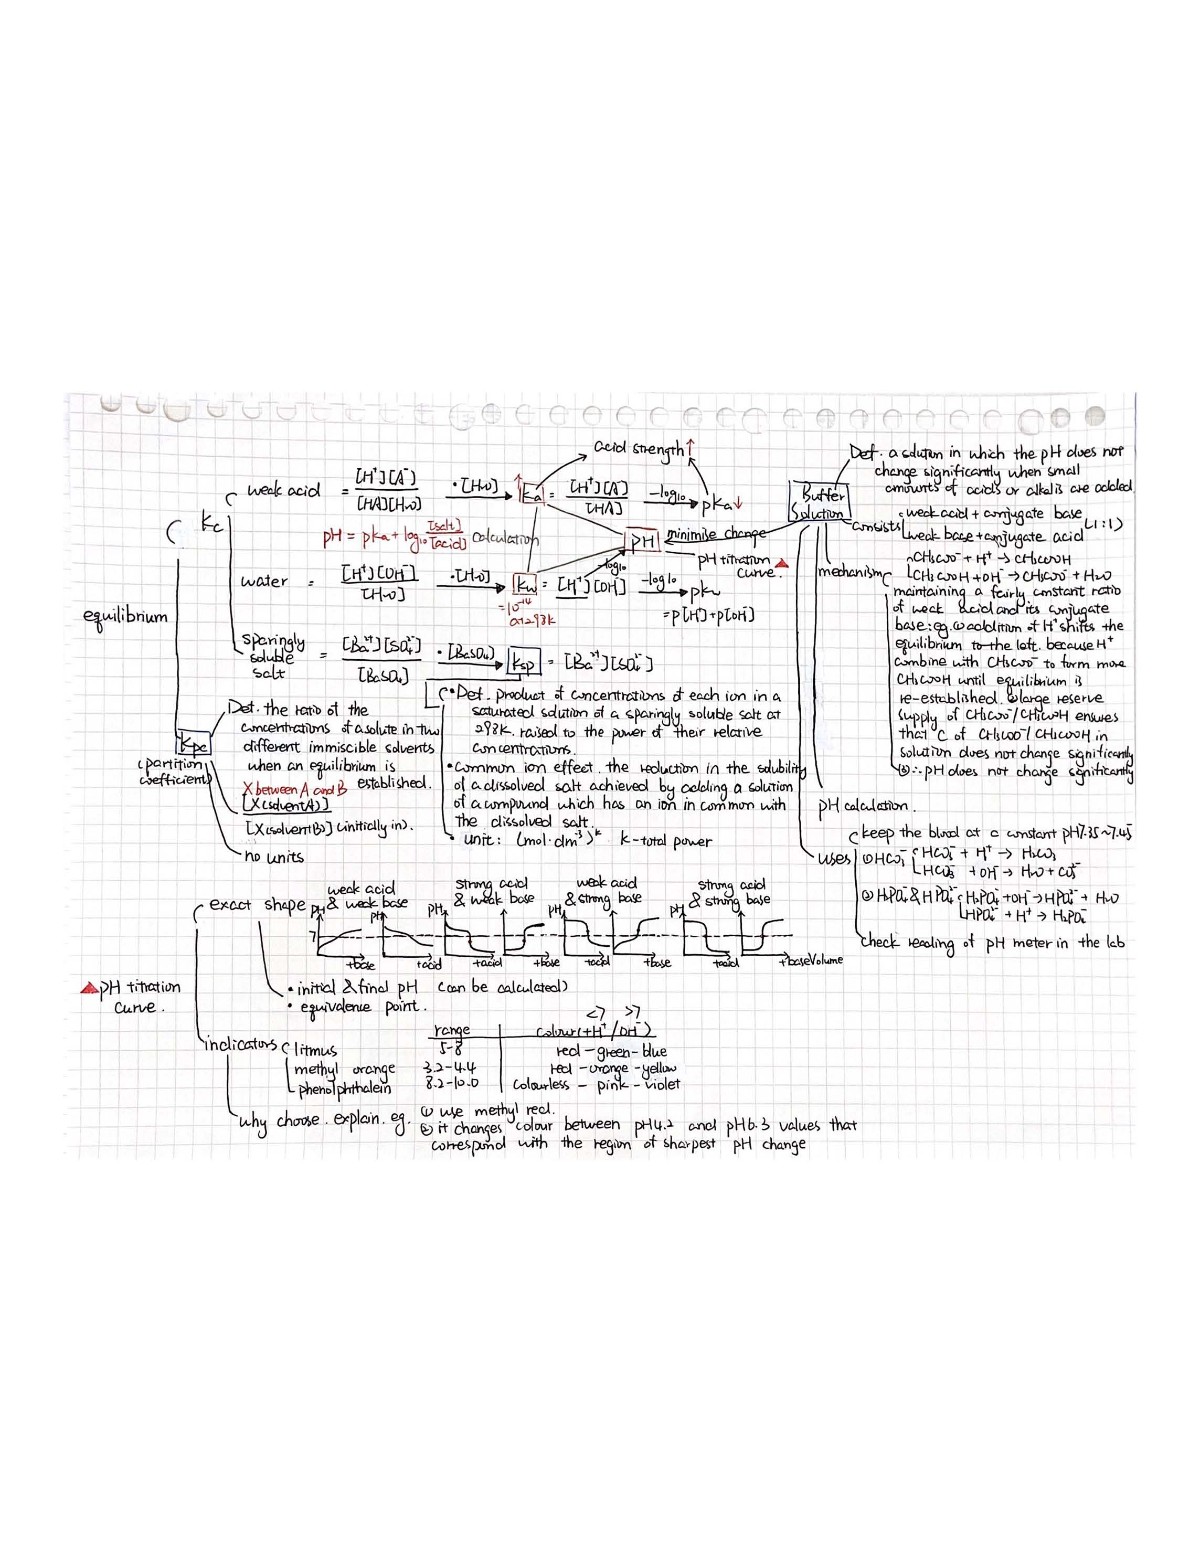 acid strength↑
weak acid = [H⁺][A⁻] / [HA][H₂O] ·[H₂O] → ↑Ka = [H⁺][A⁻] / [HA] -log₁₀ → pKa↓
Kc
pH = pKa + log₁₀ [salt]/[acid] calculation
pH
minimise change
pH titration curve. ▲
water = [H⁺][OH⁻] / [H₂O] ·[H₂O] → Kw = [H⁺][OH⁻] -log₁₀ → pKw
-log₁₀
=10⁻¹⁴
at 293K
=p[H⁺]+p[OH⁻]
equilibrium
sparingly
soluble
salt
= [Ba²⁺][SO₄²⁻] / [BaSO₄] ·[BaSO₄] → Ksp = [Ba²⁺][SO₄²⁻]
• Def. product of concentrations of each ion in a
saturated solution of a sparingly soluble salt at
298K. raised to the power of their relative
concentrations.
• Common ion effect. the reduction in the solubility
of a dissolved salt achieved by adding a solution
of a compound which has an ion in common with
the dissolved salt.
• unit: (mol·dm⁻³)ᵏ k-total power
Kpc
(partition
coefficient)
Def. the ratio of the
concentrations of a solute in two
different immiscible solvents
when an equilibrium is
established.
X between A and B
[X(solvent A)]
[X(solvent B)] (initially in).
no units
Buffer
Solution
Def. a solution in which the pH does not
change significantly when small
amounts of acids or alkalis are added
consists
weak acid + conjugate base
weak base + conjugate acid
(1:1)
mechanism
CH₃COO⁻ + H⁺ → CH₃COOH
CH₃COOH + OH⁻ → CH₃COO⁻ + H₂O
maintaining a fairly constant ratio
of weak acid and its conjugate
base: eg. ① addition of H⁺ shifts the
equilibrium to the left. because H⁺
combine with CH₃COO⁻ to form more
CH₃COOH until equilibrium is
re-established. ② large reserve
supply of CH₃COO⁻/CH₃COOH ensures
that C of CH₃COO⁻/CH₃COOH in
solution does not change significantly
③ ∴ pH does not change significantly
pH calculation.
uses
keep the blood at a constant pH 7.35~7.45
① HCO₃⁻ HCO₃⁻ + H⁺ → H₂CO₃
HCO₃⁻ + OH⁻ → H₂O + CO₃²⁻
② H₂PO₄⁻ & HPO₄²⁻ H₂PO₄⁻ + OH⁻ → HPO₄²⁻ + H₂O
HPO₄²⁻ + H⁺ → H₂PO₄⁻
check reading of pH meter in the lab
▲ pH titration
curve.
exact shape
weak acid
& weak base
strong acid
& weak base
weak acid
& strong base
strong acid
& strong base
pH pH pH pH pH
7
+base +acid +acid +base +acid +base +acid +base Volume
• initial & final pH (can be calculated)
• equivalence point.
<7 >7
indicators
range colour(+H⁺/OH⁻)
litmus 5-8 red - green - blue
methyl orange 3.2-4.4 red - orange - yellow
phenolphthalein 8.2-10.0 colourless - pink - violet
why choose. explain. eg. ① use methyl red.
② it changes colour between pH4.2 and pH6.3 values that
correspond with the region of sharpest pH change